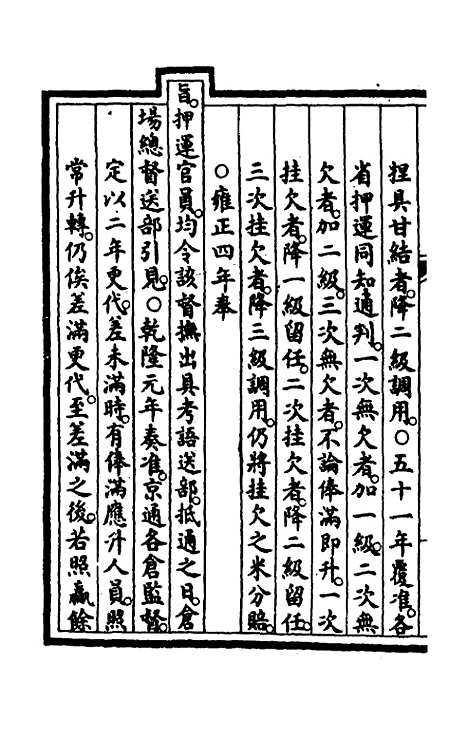 捏具甘結者。降二級調用。○五十一年覆准。各
省押運同知通判。一次無欠者。加一級。二次無
欠者。加二級。三次無欠者。不論俸滿即升。一次
挂欠者。降一級留任。二次挂欠者。降二級留任。
三次挂欠者。降三級調用。仍將挂欠之米分賠。
○雍正四年奉
旨。押運官員。均令該督撫出具考語送部。抵通之日。倉
場總督送部引見。○乾隆元年奏准。京通各倉監督。
定以二年更代。差未滿時。有俸滿應升人員。照
常升轉。仍俟差滿更代。至差滿之後。若照贏餘